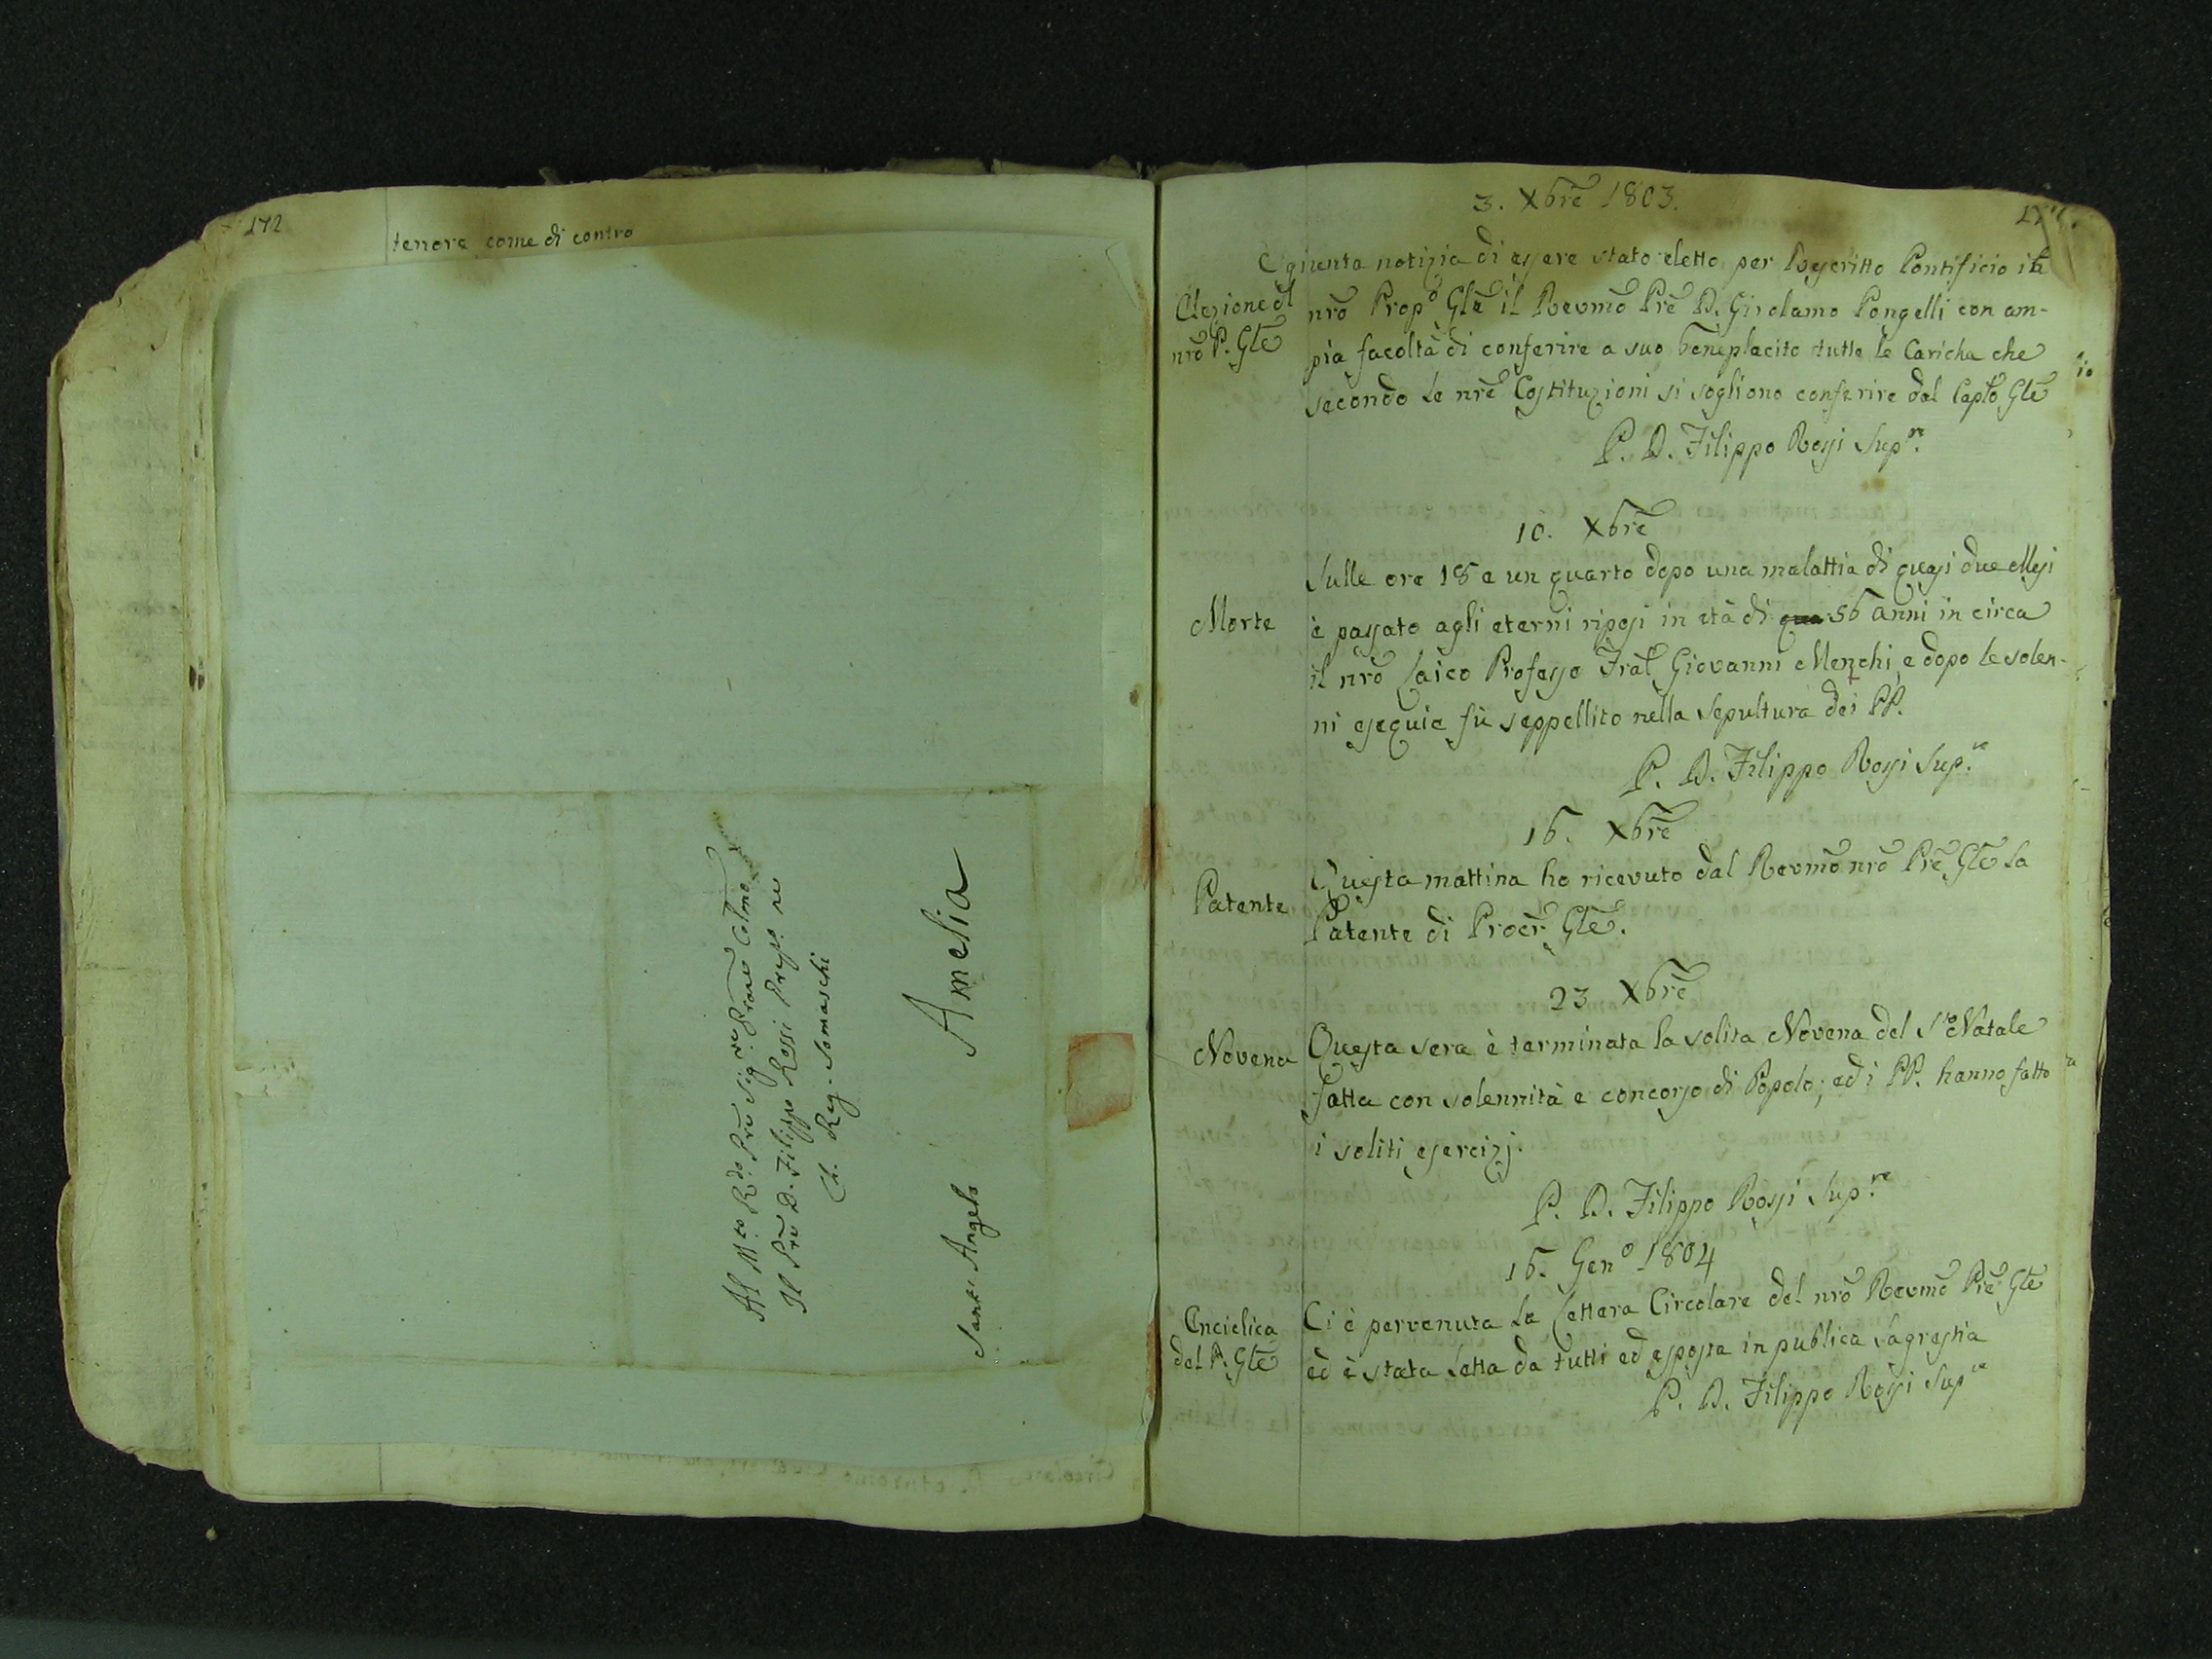 172
tenore come di contro
Al M.to R.do Pre Sig.re Prone Colmo
Il Pre D. Filippo Rossi Prepo ne
Ch. Reg. Somaschi
Sant' Angelo Amelia
3. Xbre 1803.
È giunta notizia di essere stato eletto per Rescritto Pontificio in
Elezione del
nro P. Gle
nro Prop.o Gle il Revmo Pre D. Girolamo Pongelli con am-
pia facoltà di conferire a suo beneplacito tutte le Cariche che
secondo le nre Costituzioni si sogliono conferire dal Caplo Gle
P. D. Filippo Rossi Sup.re
10. Xbre
Sulle ore 18 e un quarto dopo una malattia di quasi due Mesi
Morte
è passato agli eterni riposi in età di qua 56 anni in circa
il nro Laico Professo Fral Giovanni Menchi, e dopo le solen-
ni esequie fù seppellito nella Sepultura dei PP.
P. D. Filippo Rossi Sup.re
16. Xbre
Patente
Questa mattina ho ricevuto dal Revmo nro Pre Gle la
Patente di Procr Gle.
23 Xbre
Novena
Questa sera è terminata la solita Novena del S.to Natale
fatta con solennità e concorso di Popolo; ed i PP. hanno fatto
i soliti esercizj.
P. D. Filippo Rossi Sup.re
16. Gen.o 1804
Enciclica
del P. Gle
Ci è pervenuta la Lettera Circolare del nro Revmo Pre Gle
ed è stata letta da tutti ed esposta in publica Sagrestia
P. D. Filippo Rossi Sup.re